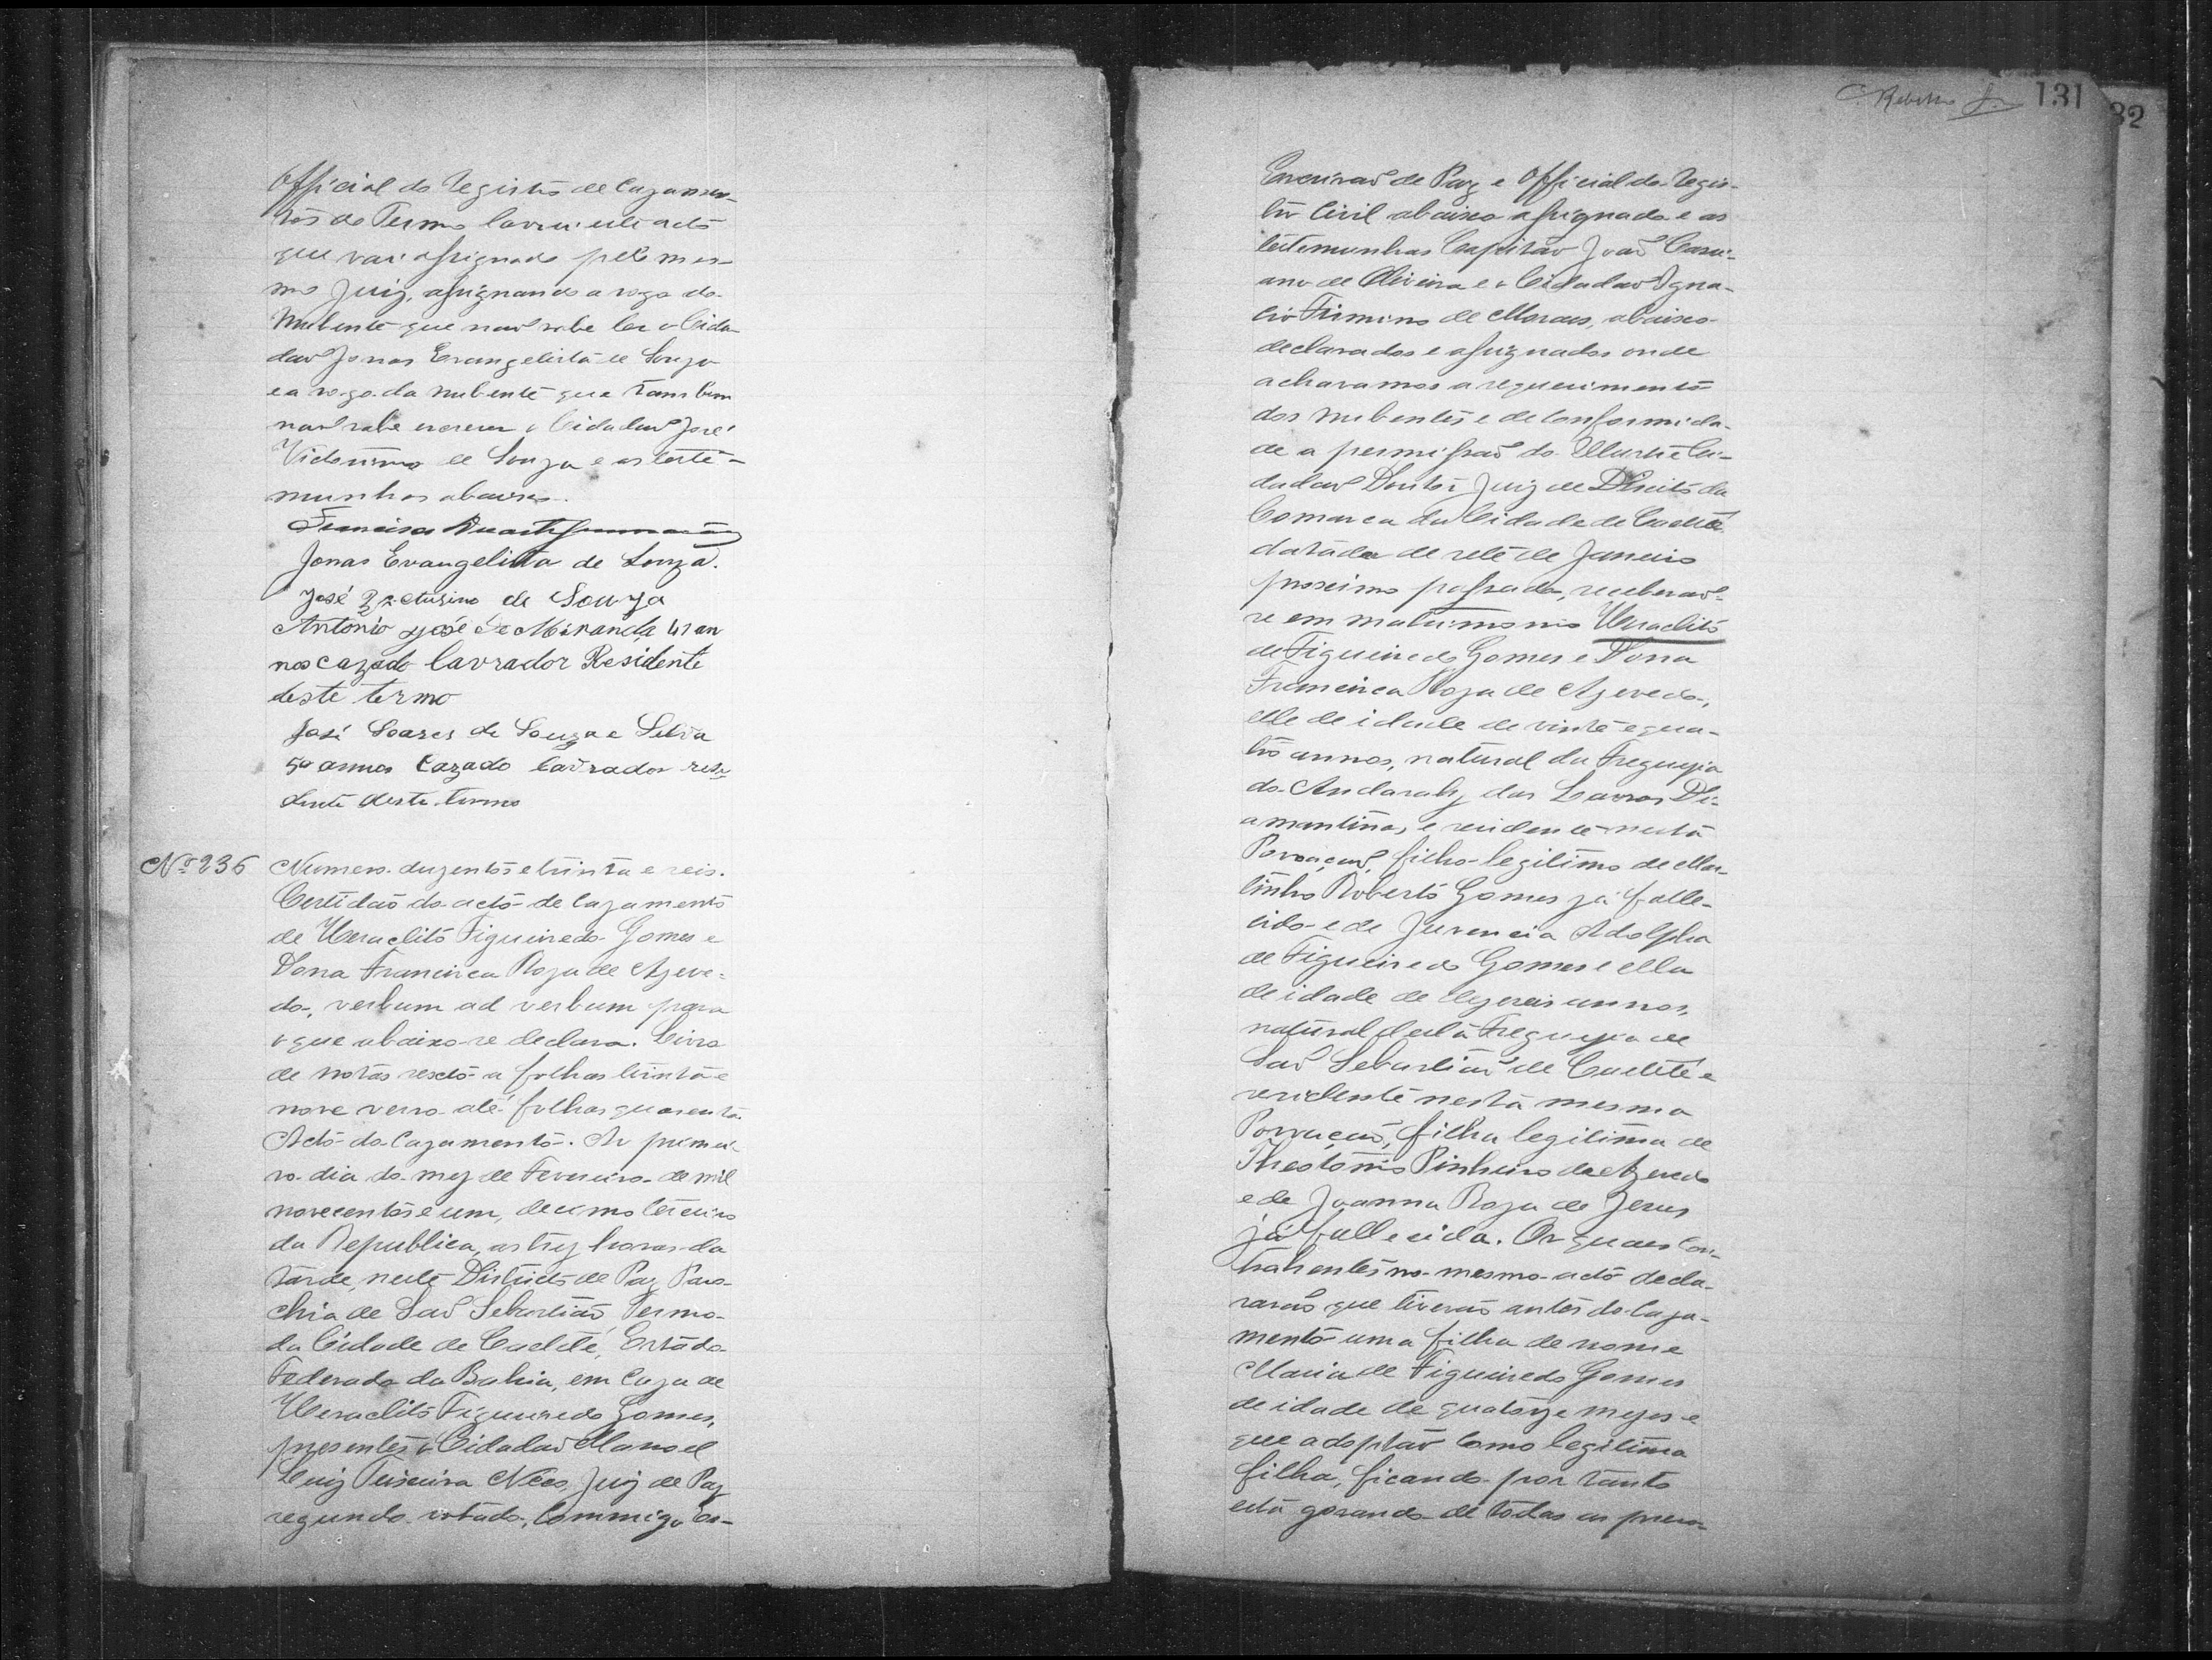 Official do Registro de Cazamen-
tos do Termo lavrei este acto
que vai assignado pelo mes-
mo Juiz, assignando a rogo do
Nubente que não sabe ler o Cida-
dão Jonas Evangelista de Souza
e a rogo da nubente que tambem
não sabe escrever o Cidadão José
Victorino de Souza e as teste-
munhas abaixo.
Francisco Duarte
Jonas Evangelista de Souza.
José de Souza
Antonio José de Miranda 41 an
nos cazado lavrador Residente
deste termo
José Soares de Souza e Silva
50 annos Cazado lavrador resi
dente deste termo
Nº 236 Numero duzentos e trinta e seis.
Certidão do acto de Cazamento
de Heraclito Figueiredo Gomes e
Dona Francisca Roza de Azeve-
do, verbum ad verbum para
o que abaixo se declara. Livro
de notas sexto a folhas trinta e
nove verso até folhas quarenta.
Acto do Cazamento. Ao primei-
ro dia do mez de Fevereiro de mil
novecentos e um, decimo terceiro
da Republica, as trez horas da
tarde, neste Districto de Paz Paro-
chia de São Sebastião, Termo
da Cidade de Caeteté, Estado
Federado da Bahia, em Caza de
Heraclito Figueiredo Gomes,
presentes o Cidadão Manoel
Luiz Teixeira Juiz de Paz
segundo votado, Commigo Es-
C. Rebello 131
32
Escrivão de Paz e Official do Regis-
tro Civil abaixo assignado e as
testemunhas Capitão João
ano de Oliveira e o Cidadão Igna-
cio Firmino de Moraes, abaixo
declarados e assignados onde
achavamos a requerimento
dos nubentes e de Conformida-
de a permissão do Illustre Ci-
dadão Doutor Juiz de Direito da
Comarca da Cidade de Caeteté
datada de sete de Janeiro
proximo passado, receberão-
se em matrimonio Heraclito
de Figueiredo Gomes e Dona
Francisca Roza de Azevedo,
elle de idade de vinte e qua-
tro annos, natural da Freguezia
do Andarahy das Lavras Di-
amantinas, e residente nesta
Povoação, filho legitimo de Mar-
tinho Roberto Gomes já falle-
cido e de Juvencia Adolpha
de Figueiredo Gomes e ella
de idade de dezeseis annos,
natural desta Freguezia de
São Sebastião de Caeteté e
residente nesta mesma
Povoação, filha legitima de
Theotonio Pinheiro de Azevedo
e de Joanna Roza de Jesus
já fallecida. Os quaes Con-
trahentes no mesmo acto decla-
rarão que tiverão antes do Caza-
mento uma filha de nome
Maria de Figueiredo Gomes
de idade de quatorze mezes e
que adoptão Como legitima
filha, ficando por tanto
esta gosando de todas as prero-